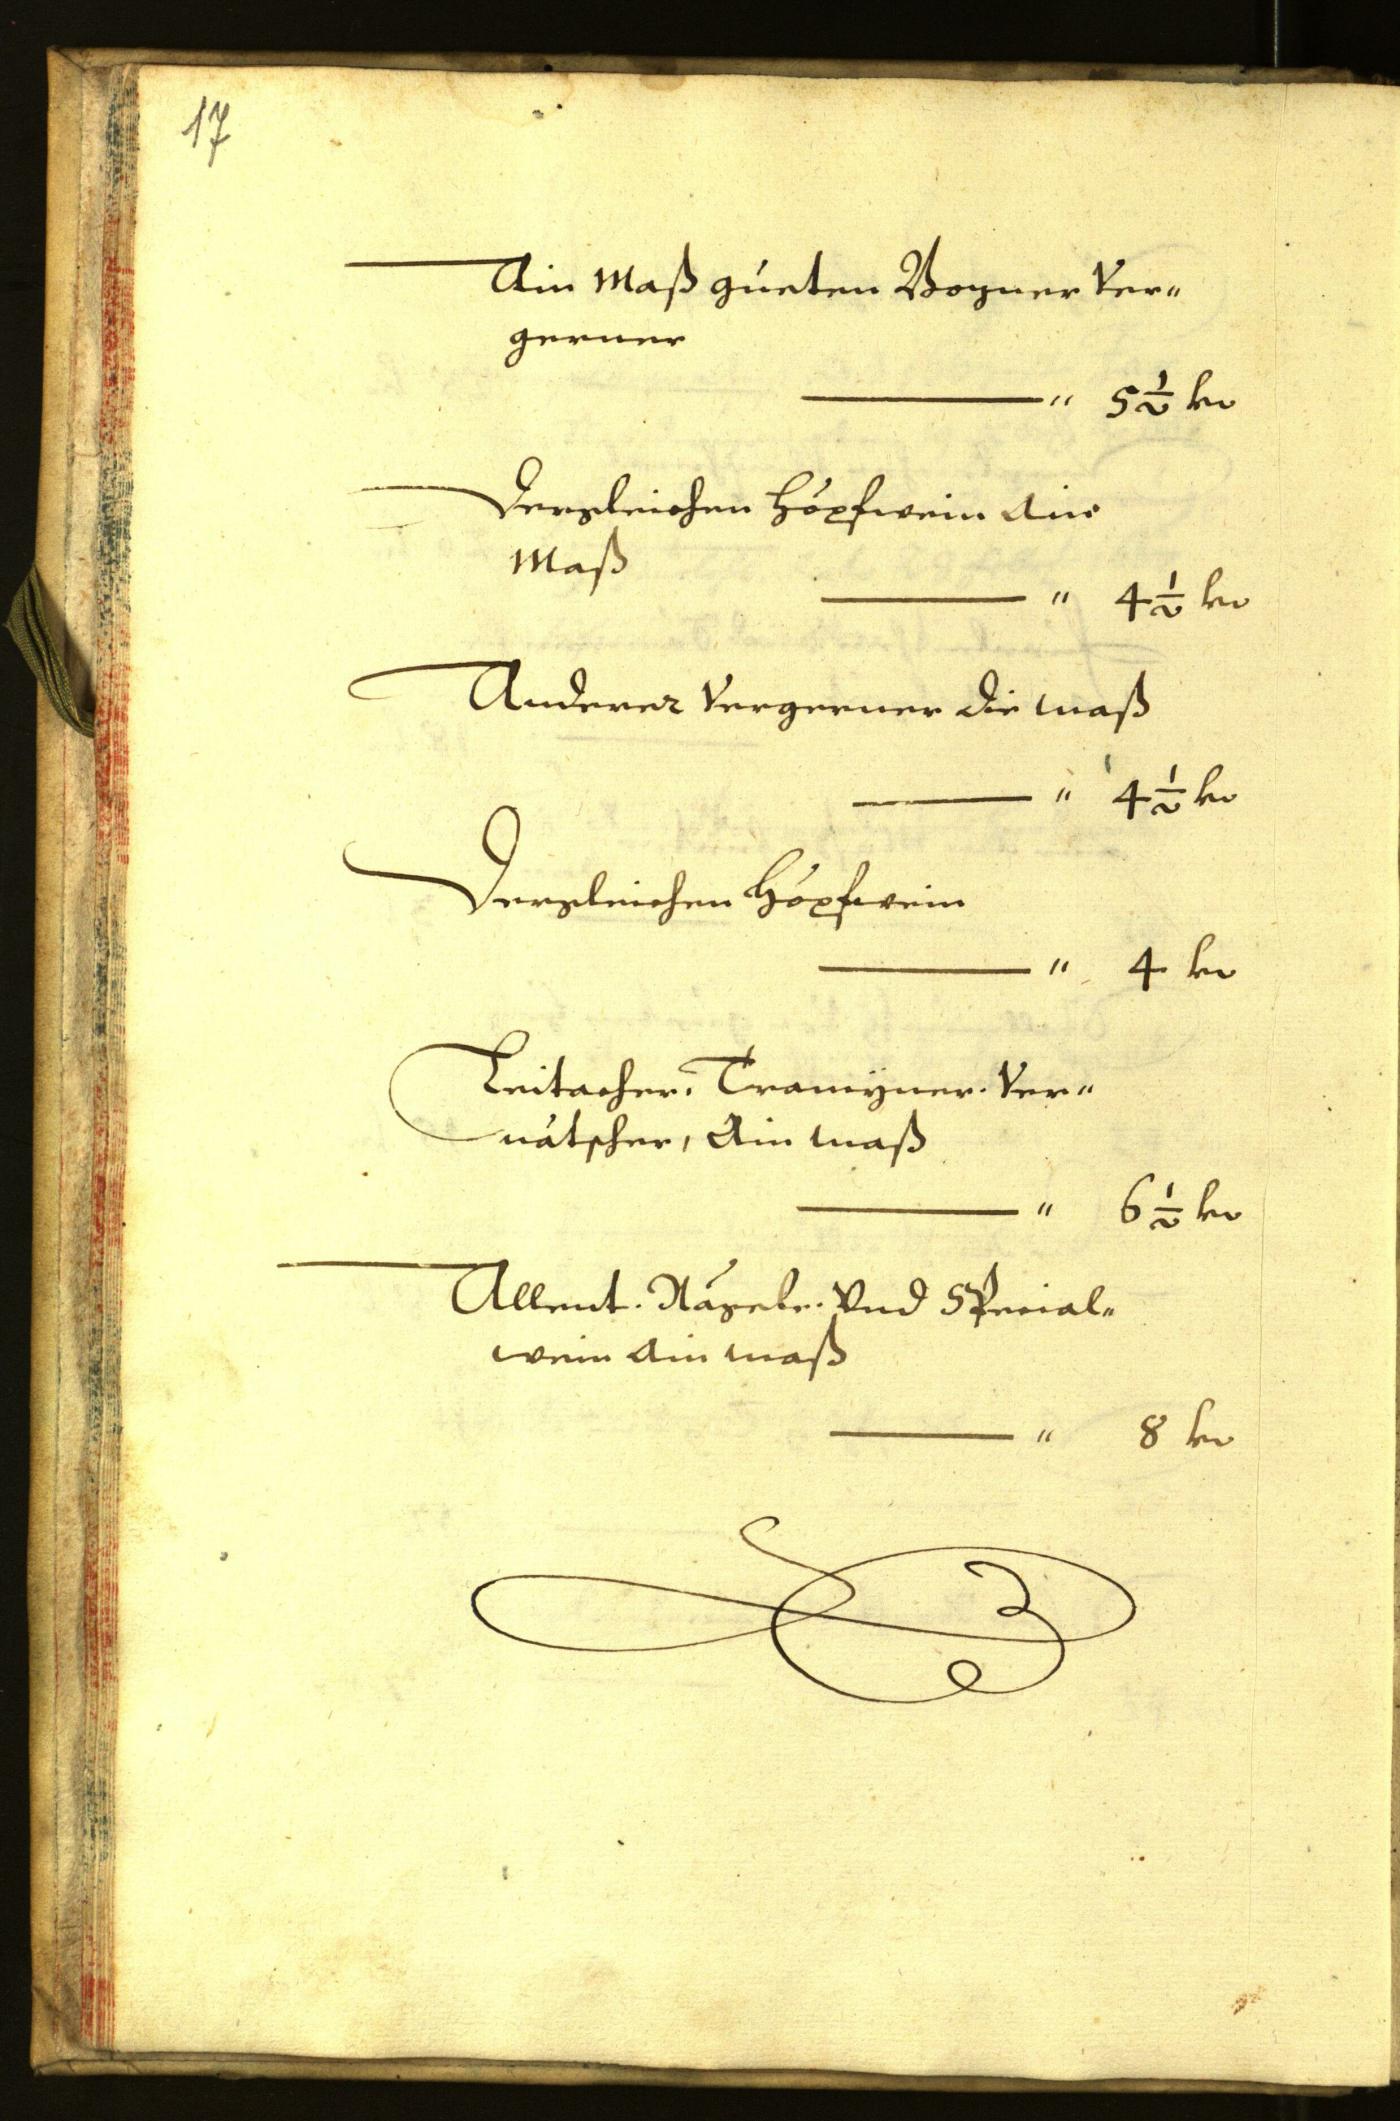 17
Ain Maß gueten Bozner Ver„
gerner
„ 5½ kr
Dergleichen Höpfwein ain
Maß
„ 4½ kr
Anderer Vergerner die maß
„ 4½ kr
Dergleichen Höpfwein
„ 4 kr
Leitacher. Tramÿner. Ver„
nätscher, Ain maß
„ 6½ kr
Allent. Räzele. Vnd Special„
wein ain maß
„ 8 kr